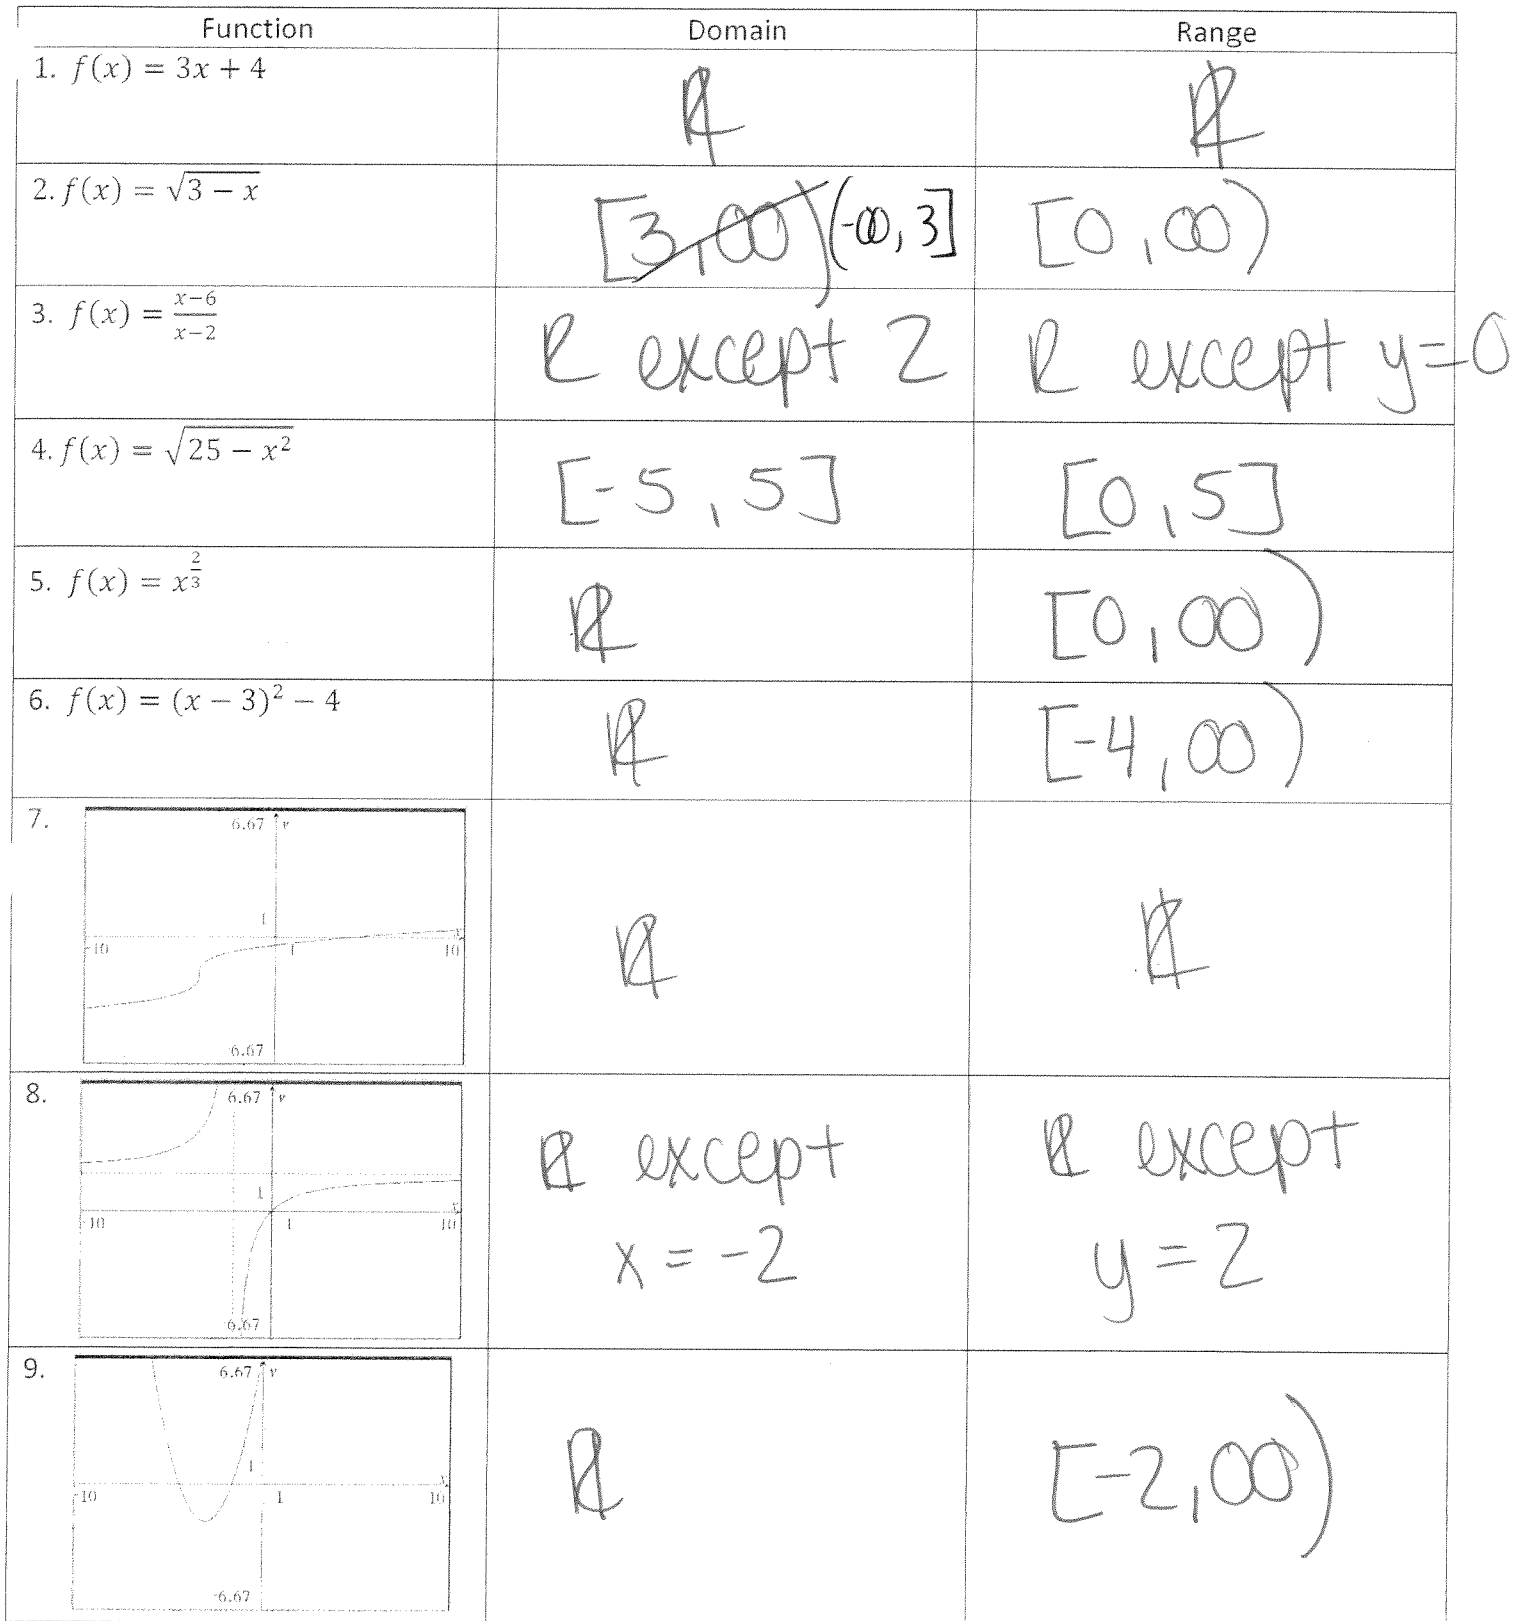 Function Domain Range
1. f(x) = 3x + 4 ℝ ℝ
2. f(x) = √(3 − x) [3, ∞) (-∞, 3] [0, ∞)
3. f(x) = (x−6)/(x−2) ℝ except 2 ℝ except y=0
4. f(x) = √(25 − x²) [-5, 5] [0, 5]
5. f(x) = x^(2/3) ℝ [0, ∞)
6. f(x) = (x − 3)² − 4 ℝ [-4, ∞)
7.
6.67 y
1
-10 1 10 x
-6.67
ℝ ℝ
8.
6.67 y
1
-10 1 10 x
-6.67
ℝ except
x = -2
ℝ except
y = 2
9.
6.67 y
1
-10 1 10 x
-6.67
ℝ [-2, ∞)